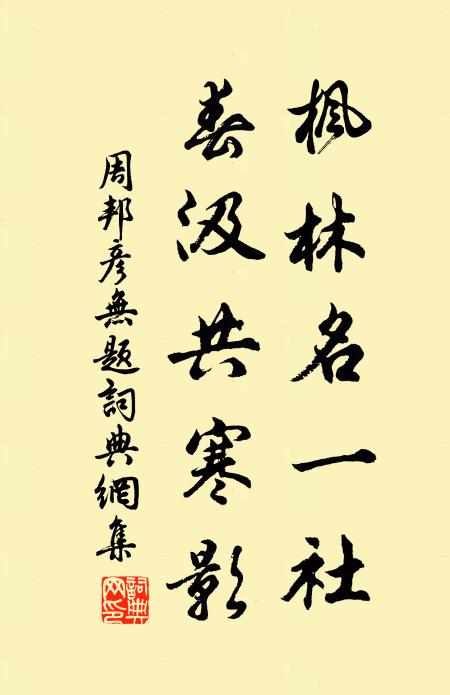 楓林名一社
舂汲共寒影
周邦彥無題詞典網集
詞典網印